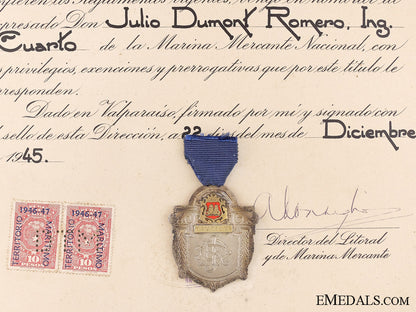 expresado Don Julio Dumont Romero, Ing.
Cuarto de la Marina Mercante Nacional, con
privilegios, exenciones y prerrogativas que por este título le
responden.
Dado en Valparaíso, firmado por mí y signado con
sello de esta Dirección, a 22 días del mes de Diciembre
1945.
1946-47 1946-47
TERRITORIO MARITIMO
TERRITORIO MARITIMO
10 PESOS 10 PESOS
Director del Litoral
y de Marina Mercante
eMedals.com